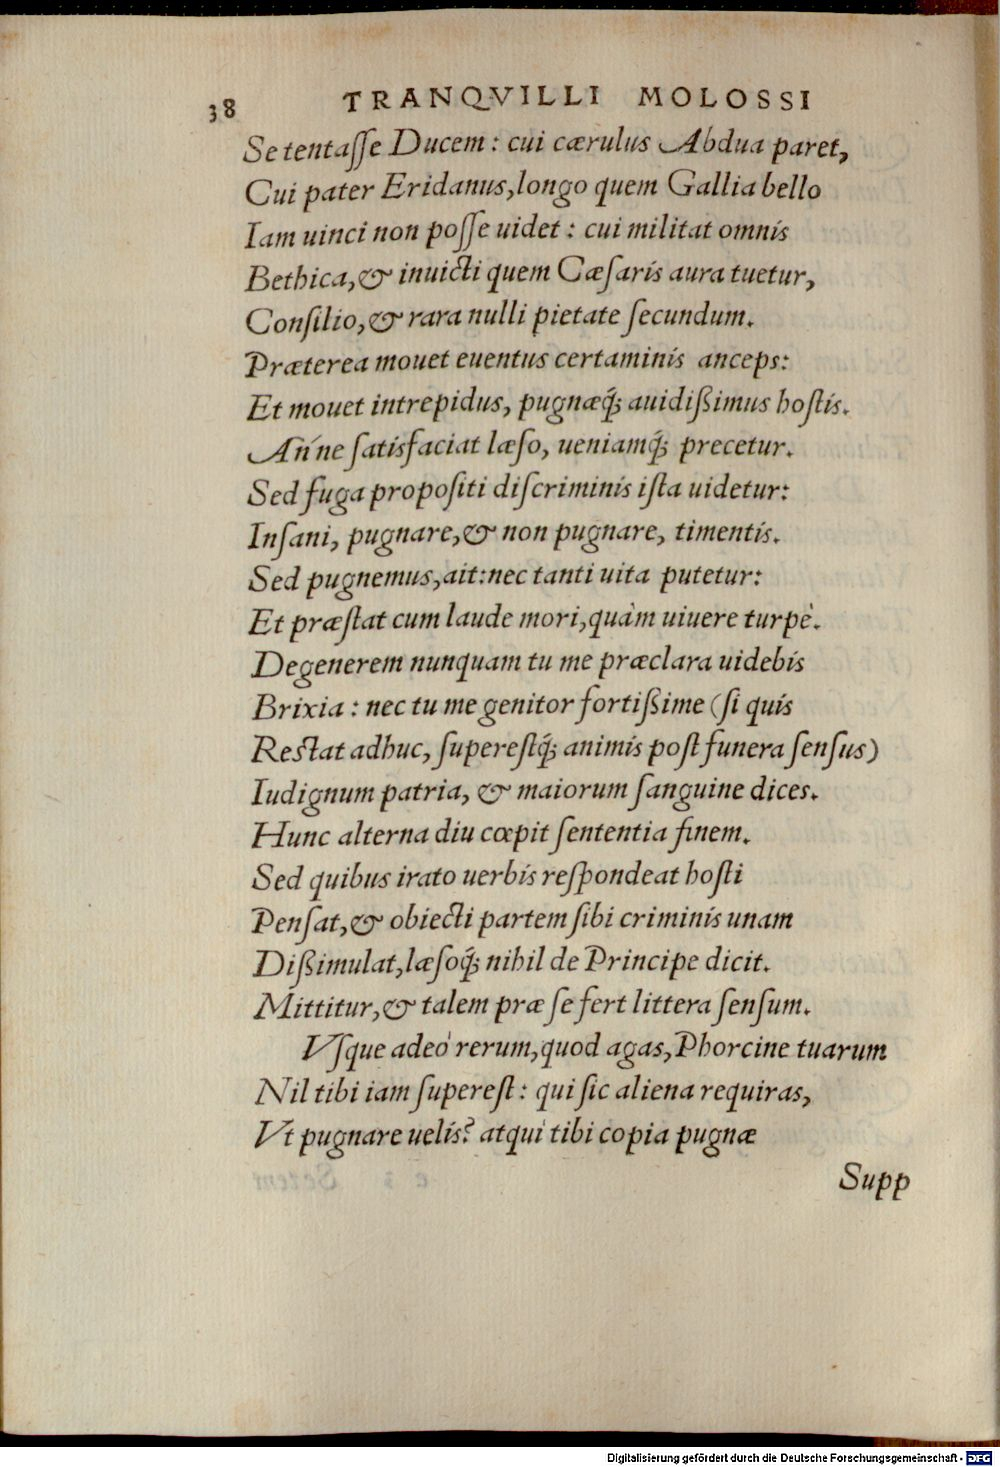 38 TRANQVILLI MOLOSSI
Se tentaſſe Ducem: cui cærulus Abdua paret,
Cui pater Eridanus, longo quem Gallia bello
Iam uinci non poſſe uidet: cui militat omnis
Bethica, & inuicti quem Cæſaris aura tuetur,
Conſilio, & rara nulli pietate ſecundum.
Præterea mouet euentus certaminis anceps:
Et mouet intrepidus, pugnæq́; auidißimus hoſtis.
Ań ne ſatisfaciat læſo, ueniamq́; precetur.
Sed fuga propoſiti diſcriminis iſta uidetur:
Inſani, pugnare, & non pugnare, timentis.
Sed pugnemus, ait: nec tanti uita putetur:
Et præſtat cum laude mori, quàm uiuere turpè.
Degenerem nunquam tu me præclara uidebis
Brixia: nec tu me genitor fortißime (ſi quis
Reſtat adhuc, ſupereſtq́; animis poſt funera ſenſus)
Iudignum patria, & maiorum ſanguine dices.
Hunc alterna diu cœpit ſententia finem.
Sed quibus irato uerbis reſpondeat hoſti
Penſat, & obiecti partem ſibi criminis unam
Dißimulat, læſoq́; nihil de Principe dicit.
Mittitur, & talem præ ſe fert littera ſenſum.
Vſque adeò rerum, quod agas, Phorcine tuarum
Nil tibi iam ſupereſt: qui ſic aliena requiras,
Vt pugnare uelis? atqui tibi copia pugnæ
Supp
Digitalisierung gefördert durch die Deutsche Forschungsgemeinschaft - DFG